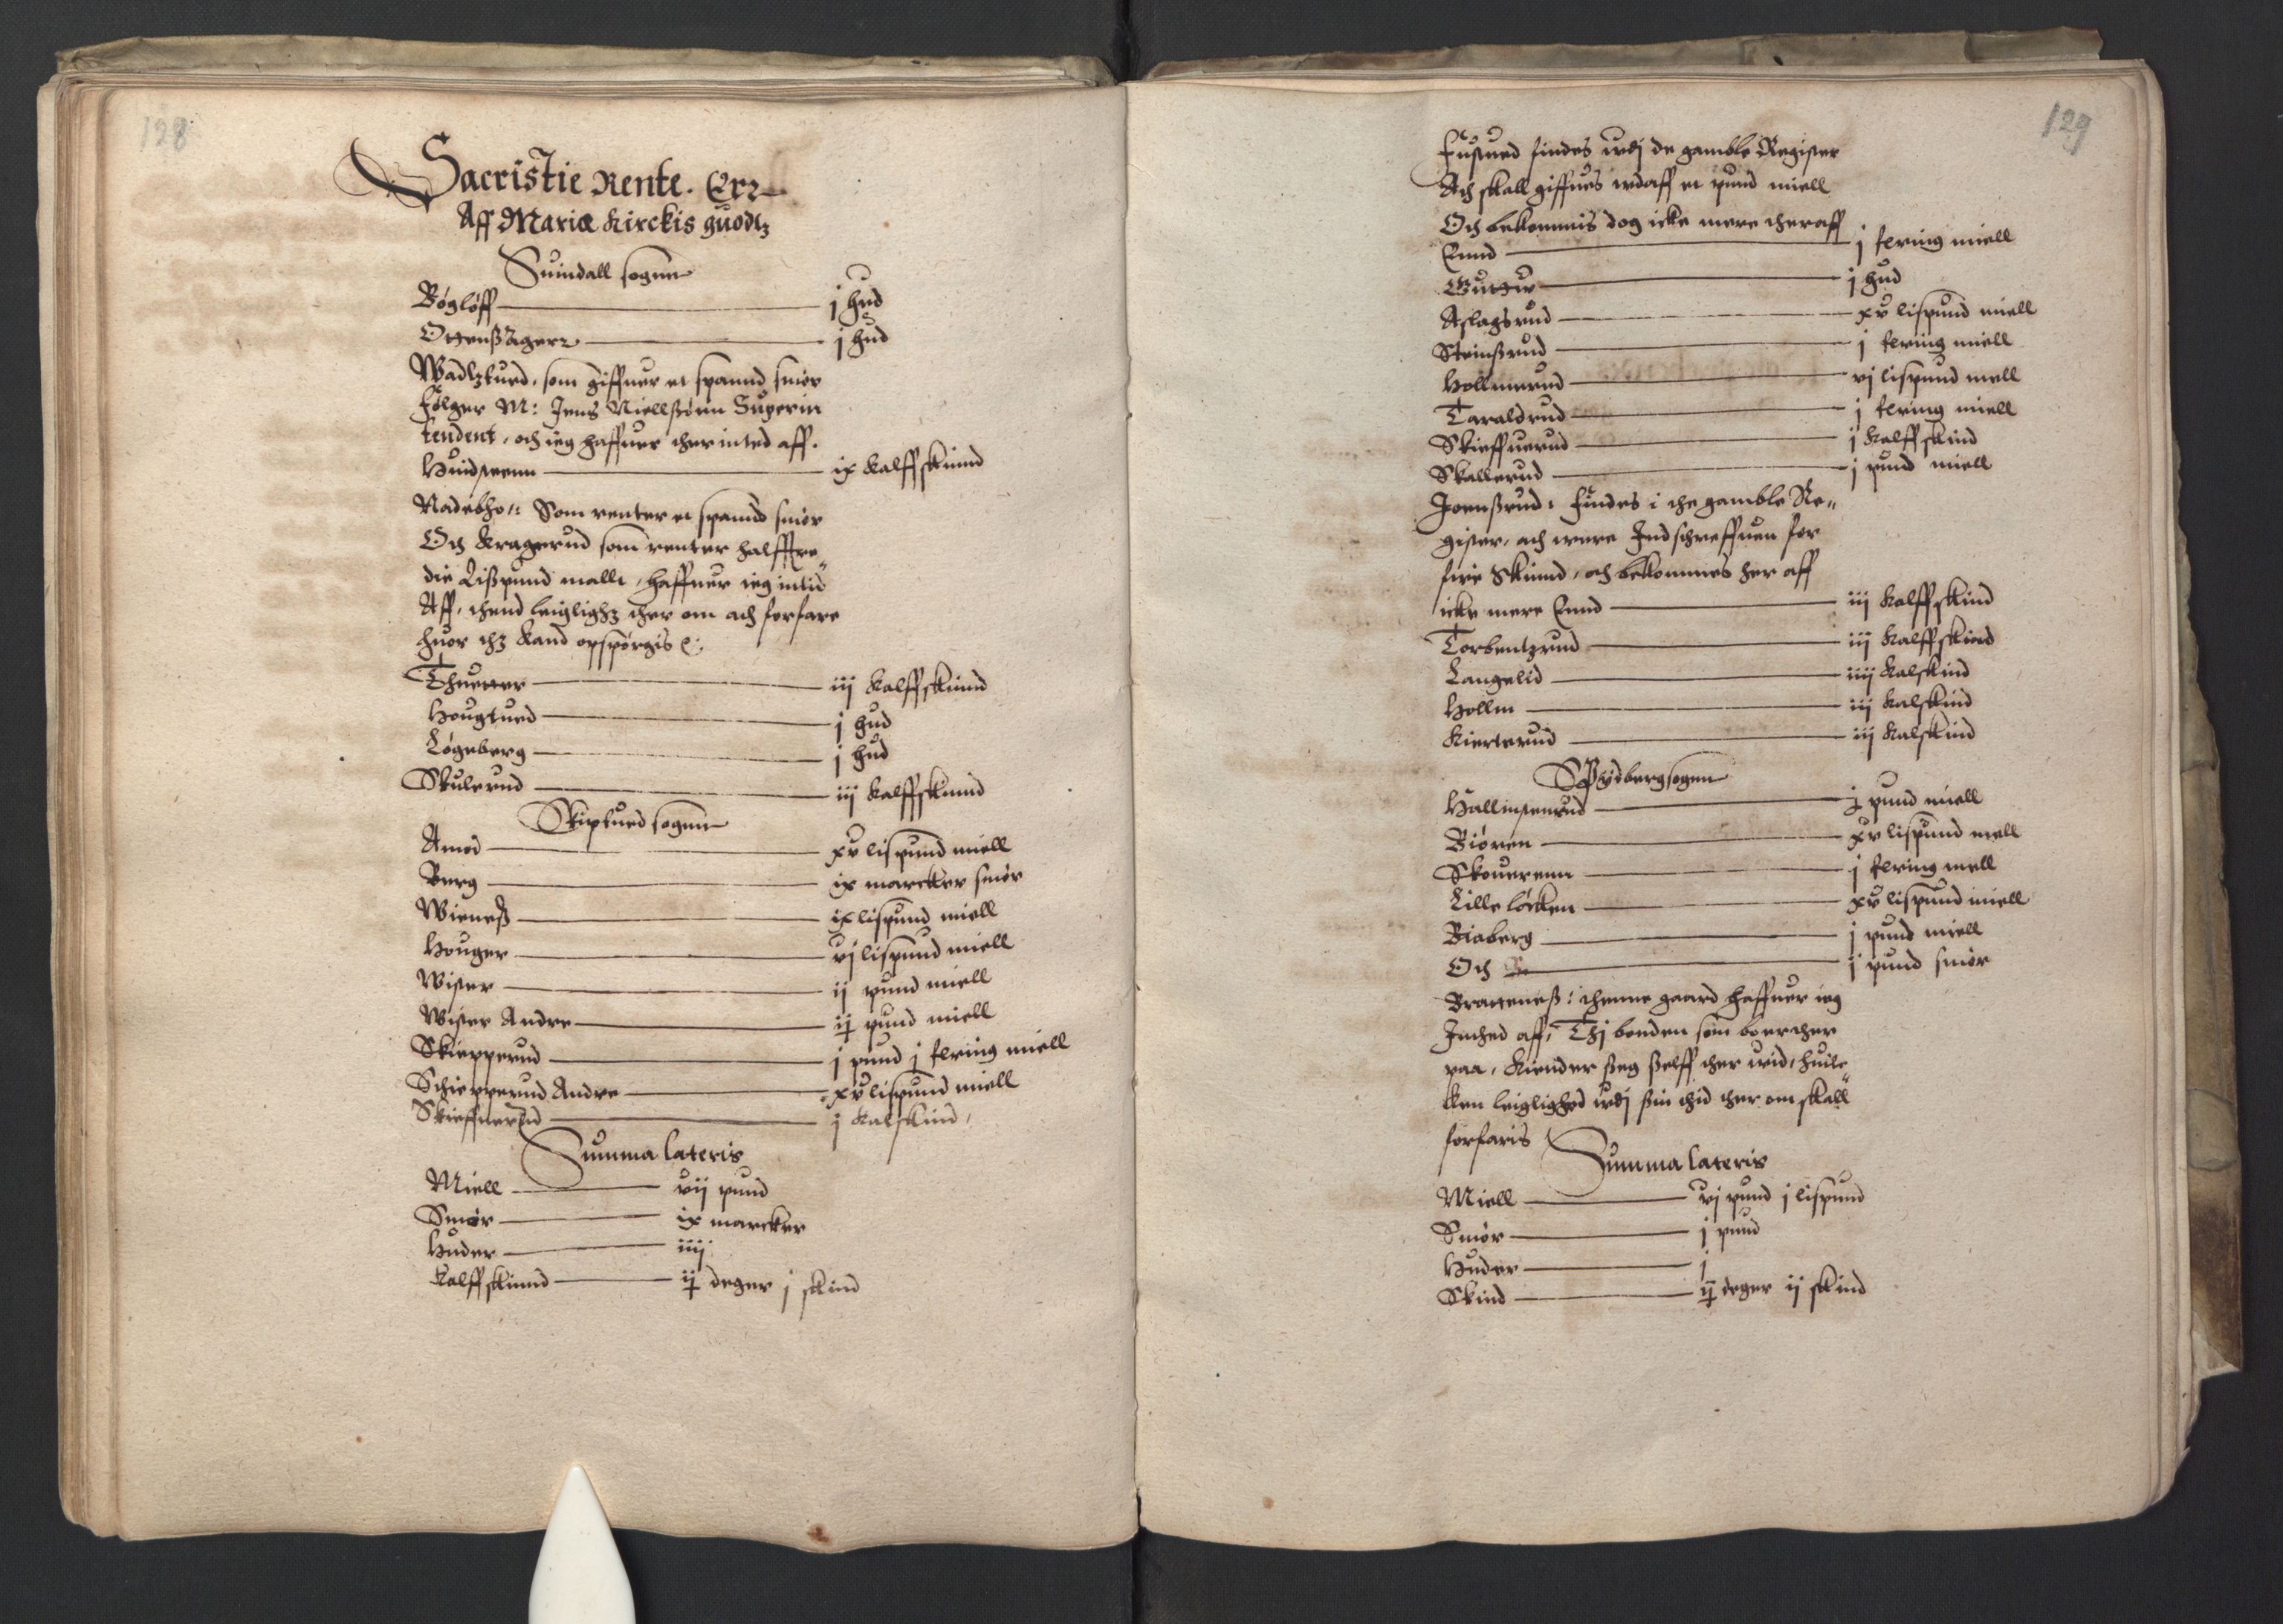 128
Sacristie Rente. Err
Aff Mariæ Kirckis guodtz
Suindall sognn
Bøgløff j hud
Ottenszagerr j hud
Wadlztued, som giffuer et spannd smør
følger M: Jens Niellszønn Superin
tendent, och ieg haffuer ther inted aff.
Huidsteenn ix kalffskinnd
Nadebho:: Som renter et spannd smør
Och Kragerud som renter halfftre¬
die Liszpund mallt, haffuer ieg intid
Aff, thend leiglighz ther om ach forfare
huor thz kand opspørgis
Thuetter iij kalffskinnd
Hougtued j hud
Løgeberg j hud
Skulerud iij kalffskinnd
Skiptued sognn
Amod xv lispund miell
Berg ix marcker smør
Wienesz ix lispund miell
Houger vj lispund miell
Wister ij pund miell
Wister Andre ij pund miell
Skiepperud j pund j fering miell
Schiepperud Andre xv lispund miell
Skieffuerud j kalskind
Summa lateris
Miell vij pund
Smør ix marcker
Huder iiij
Kalffskinnd ij deger j skind
129
Fustued findes wdj de gamble Register
Ach skall giffues wdaff et pund miell
Och bekommis dog icke mere theraff
Ennd j fering miell
Guttu j hud
Aslagsrud xv lispund miell
Steinszrud j fering miell
Hollmerud vj lispund mell
Taraldrud j fering miell
Skieffuerud j kalffskind
Skallerud j pund miell
Joenszrud: findes i the gamble Re¬
gister, ach were Indschreffuen for
fire Skinnd, och bekommes her aff
icke mere Ennd iij kalffskind
Torbentzrud iij kalffskind
Langelid iiij kalskind
Hollm iij kalskind
Kierterud iij kalskind
Spydbergsogen
Hallinstenrud j pund miell
Biøren xv lispund mell
Skouerenn j fering mell
Lille løcken xv lispund miell
Biaberg j pund miell
Och j pund smør
Brattenesz: thenne gaard haffuer ieg
Inthed aff, Thj bonden som boer ther
paa, Kiender szeg szelff ther wid, huile¬
cken leiglighed wdj szin thid ther om skall
forfaris
Summa lateris
Miell vj pund j lispund
Smør j pund
Huder j
Skind ij deger ij skind